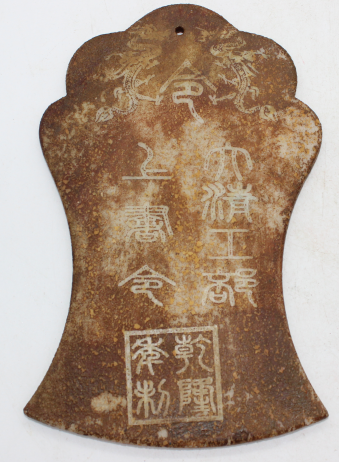 令
大清工部
上書令
乾隆
年制